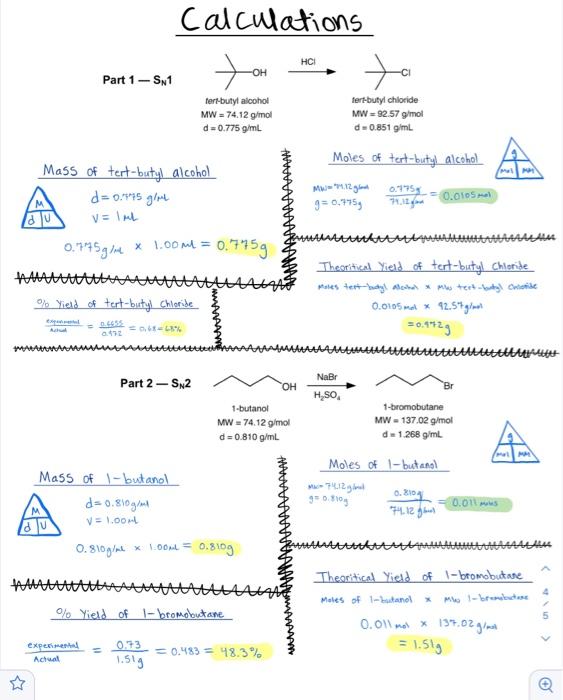 Calculations
Part 1 — SN1
OH
HCl
Cl
tert-butyl alcohol
MW = 74.12 g/mol
d = 0.775 g/mL
tert-butyl chloride
MW = 92.57 g/mol
d = 0.851 g/mL
Mass of tert-butyl alcohol
M
d V
d = 0.775 g/mL
V = 1mL
0.775g/mL × 1.00 mL = 0.775g
Moles of tert-butyl alcohol
g
Mol MM
MW= 74.12 g/mol
g = 0.775g
0.775g
74.12 g/mol
= 0.0105 mol
Theoritical Yield of tert-butyl Chloride
Moles tert-butyl alcohol × MW tert-butyl Chloride
0.0105 mol × 92.57g/mol
= 0.972g
% Yield of tert-butyl Chloride
experimental
Actual
=
0.972
= 0.68 = 68%
Part 2 — SN2
OH
NaBr
H₂SO₄
Br
1-butanol
MW = 74.12 g/mol
d = 0.810 g/mL
1-bromobutane
MW = 137.02 g/mol
d = 1.268 g/mL
Mass of 1-butanol
M
d V
d = 0.810g/ml
V = 1.00mL
0.810g/mL × 1.00mL = 0.810g
Moles of 1-butanol
g
Mol MM
MW= 74.12 g/mol
g = 0.810g
0.810g
74.12 g/mol
= 0.011 moles
Theoritical Yield of 1-bromobutane
Moles of 1-butanol × MW 1-bromobutane
0.011 mol × 137.02 g/mol
= 1.51g
% Yield of 1-bromobutane
experimental
Actual
= 0.73
1.51g
= 0.483 = 48.3%
4
/
5